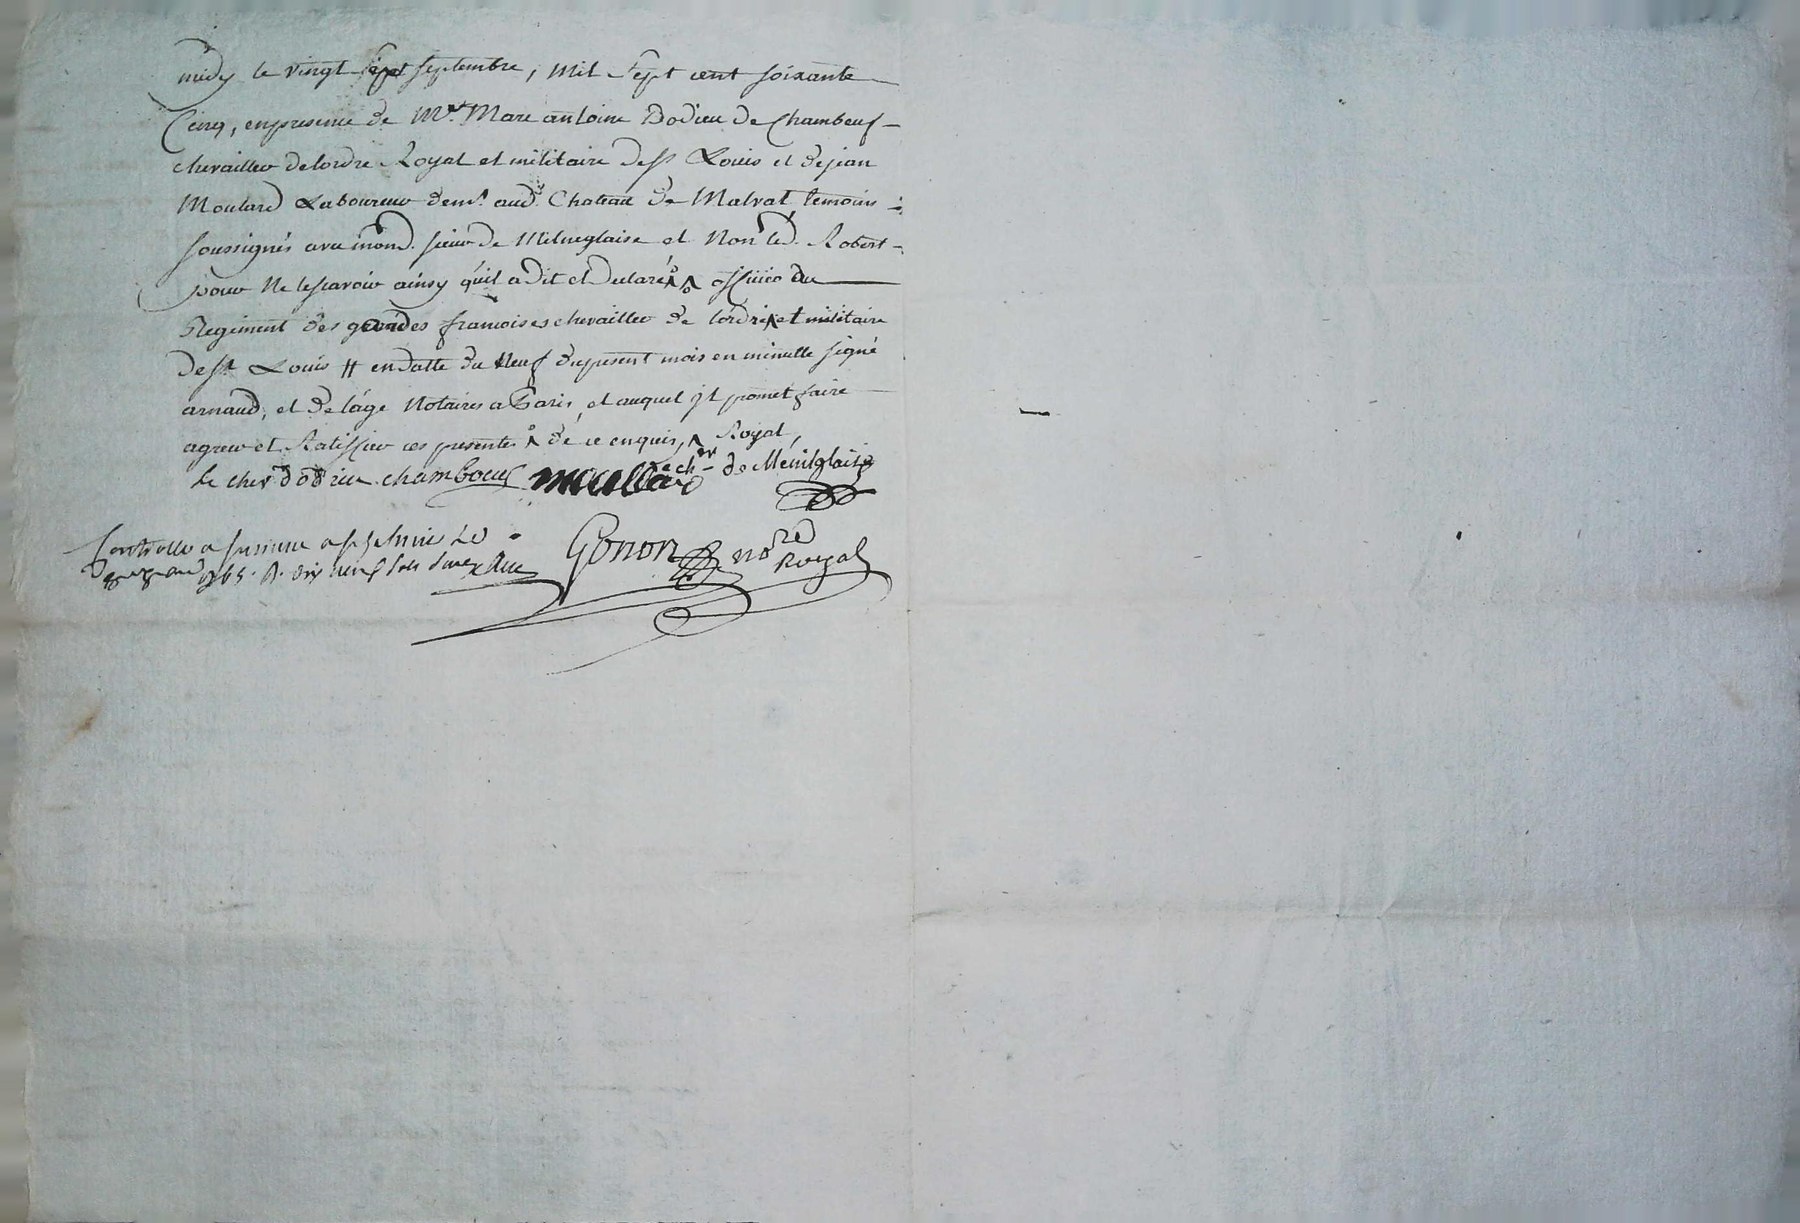 midy le vingt sept septembre, mil sept cent soixante
Cinq, en presence de Mr. Marc antoine Dodieu de Chambeuf
chevaillier de lordre Royal et militaire de st Louis et de jean
Moulard Laboureur demt. audt. Chateau de Malvat temoins
soussignés avec mond. sieur de Milneglaise et Non led. Robert
pour Ne le scavoir ainsy qu'il a dit et declaré officier du
Regiment des gardes francoises chevaillier de lordre et militaire
de st Louis # en datte du Neuf du present mois en minutte signé
arnaud, et De lage Notaires a Paris, et auquel jl promet faire
agreer et Ratiffier ces presentes de ce enquis, Royal,
Le cher dodieu chamboeuf moullard le cher de Menilglaise
Controlle a
1765. R. dix neuf sols
Gonon nore Royal